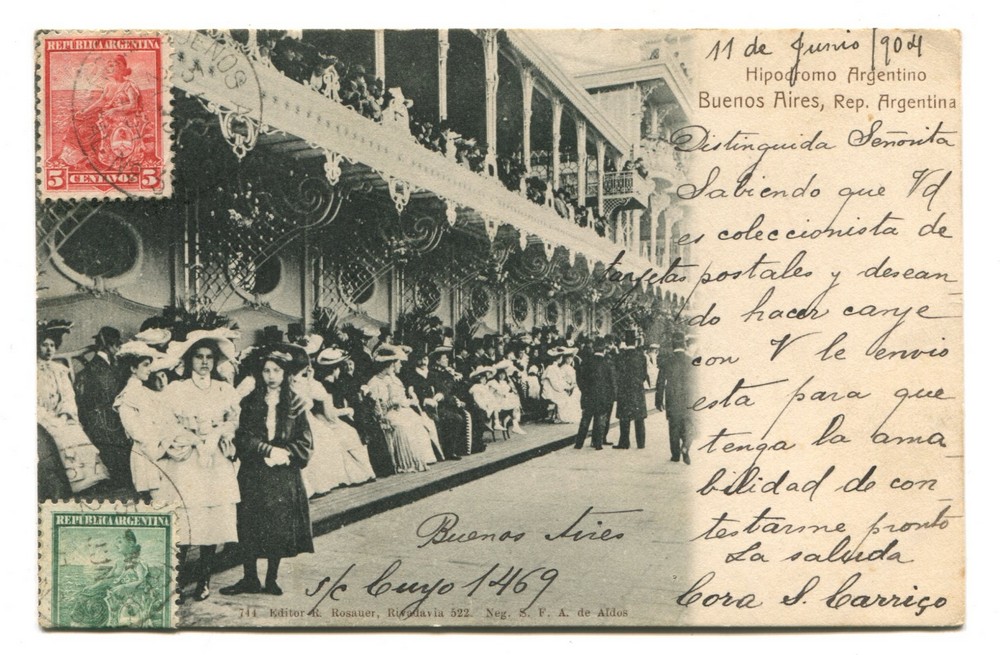 REPUBLICA ARGENTINA
5 CENTAVOS 5
11 de Junio 1904
Hipodromo Argentino
Buenos Aires, Rep. Argentina
Distinguida Señorita
Sabiendo que Vd
es coleccionista de
tarjetas postales y desean
do hacer canje
con V le envio
esta para que
tenga la ama
bilidad de con
testarme pronto
La saluda
Cora S. Carriço
Buenos Aires
s/c Cuyo 1469
REPUBLICA ARGENTINA
711 Editor R. Rosauer, Rivadavia 522. Neg. S. F. A. de Aldos